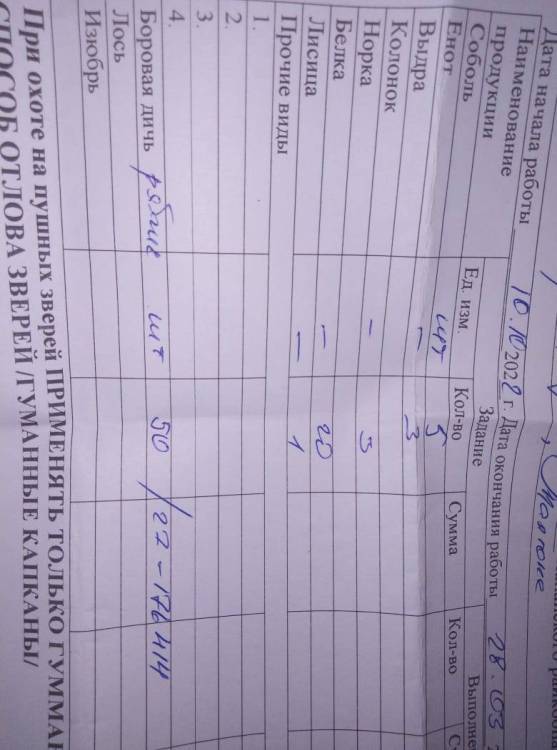 Дата начала работы 10.10 2022 г. Дата окончания работы 28.03
Наименование продукции Ед. изм. Задание Выполне
Кол-во Сумма Кол-во С
Соболь
Енот шт 5
Выдра – 3
Колонок
Норка – 5
Белка
Лисица – 20
Прочие виды – 1
1.
2.
3.
4.
Боровая дичь рябчик шт 50 /27-176414
Лось
Изюбрь
При охоте на пушных зверей ПРИМЕНЯТЬ ТОЛЬКО ГУММАН
СПОСОБ ОТЛОВА ЗВЕРЕЙ /ГУМАННЫЕ КАПКАНЫ/